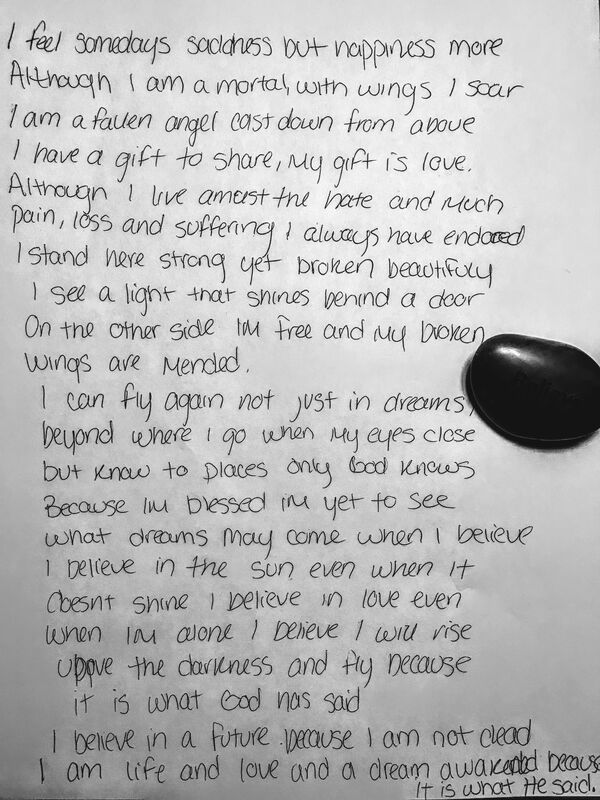 I feel somedays saddness but happiness more
Although I am a mortal, with wings I soar
I am a fallen angel cast down from above
I have a gift to share, My gift is love.
Although I live amoust the hate and Much
Pain, loss and suffering I always have endored
I stand here strong yet broken beautifuly
I see a light that shines behind a door
On the other side Im free and My broken
wings are Mended.
I can fly again not just in dreams,
beyond where I go when My eyes close
but know to places only God knows
Because Im blessed im yet to see
what dreams May come when I believe
I believe in the sun even when it
doesnt shine I believe in love even
when Im alone I believe I will rise
uppve the darkness and fly because
it is what God has said
I believe in a future because I am not dead
I am life and love and a dream awakended because
It is what He said.